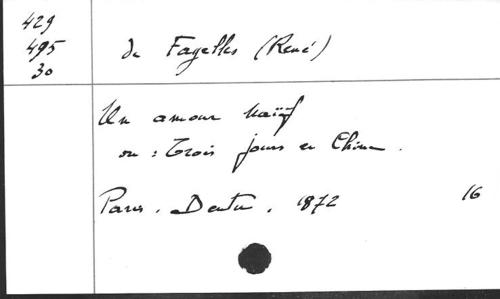 429
495
30
de Fayelles (René)
Un amour naïf
ou : Trois jours en Chine.
Paris. Dentu. 1872 16